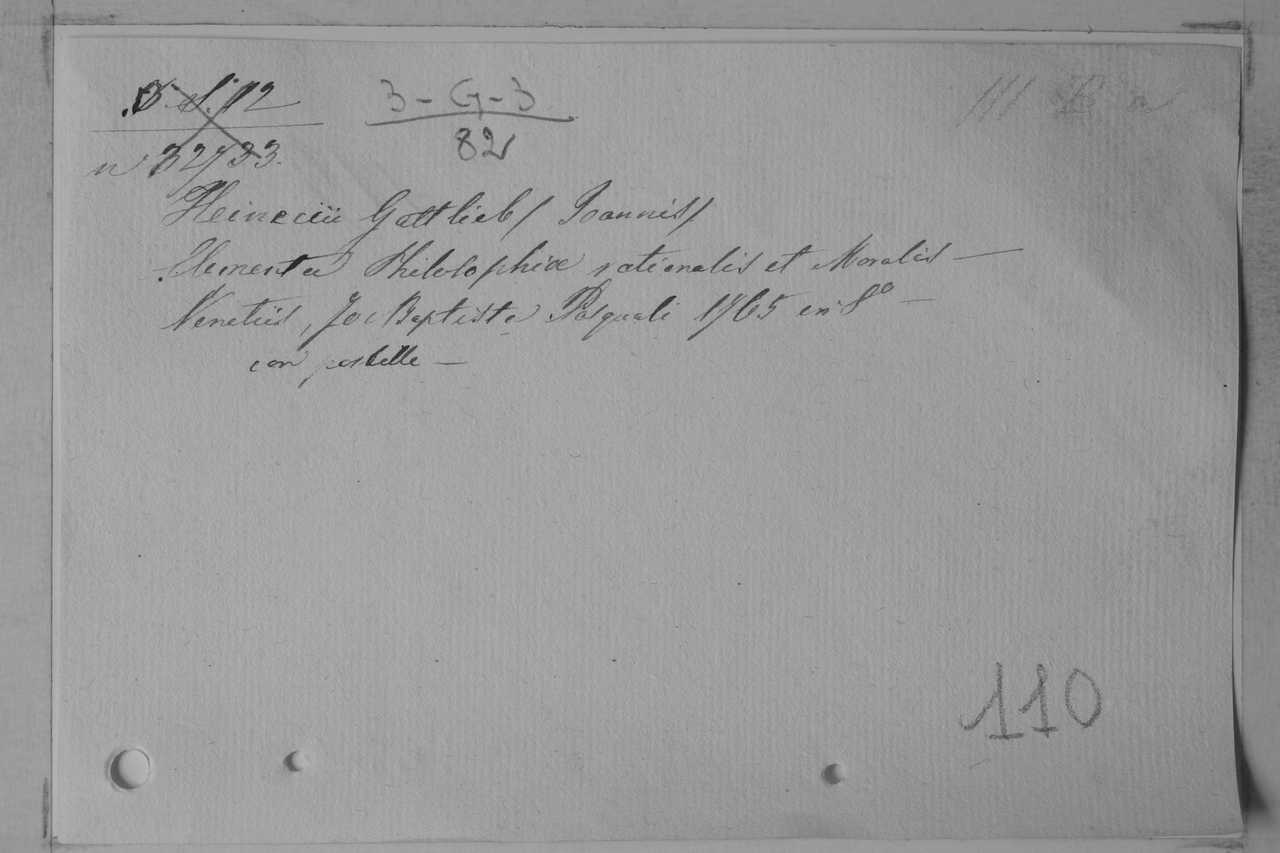 3-G-3
82
n 32733.
Heineccii Gottlieb / Joannis /
Elementa Philosophiae rationalis et Moralis —
Venetiis, Jo: Baptista Pasquali 1765 in 8º —
con postille —
110